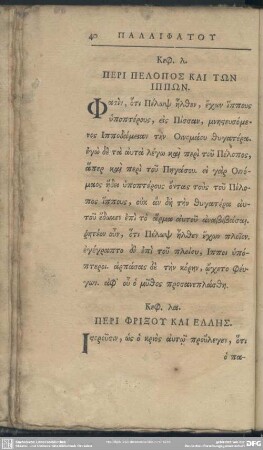 40 ΠΑΛΑΙΦΑΤΟΥ
Κεφ. λ.
ΠΕΡΙ ΠΕΛΟΠΟΣ ΚΑΙ ΤΩΝ
ΙΠΠΩΝ.
Φασὶν, ὅτι Πέλοψ ἦλθεν, ἔχων ἵππους
ὑποπτέρους, εἰς Πίσσαν, μνηστευσόμε-
νος Ἱπποδάμειαν τὴν Οἰνομάου θυγατέρα.
ἐγὼ δὲ τὰ αὐτὰ λέγω καὶ περὶ τοῦ Πέλοπος,
ἅπερ καὶ περὶ τοῦ Πηγάσου. εἰ γὰρ Οἰνό-
μαος ᾔδει ὑποπτέρους ὄντας τοὺς τοῦ Πέλο-
πος ἵππους, οὐκ ἂν δὴ τὴν θυγατέρα αὐ-
τοῦ ἐδίωκεν ἐπὶ τὸ ἅρμα αὐτοῦ ἀναβιβάσαι.
ῥητέον οὖν, ὅτι Πέλοψ ἦλθεν ἔχων πλοῖον.
ἐγέγραπτο δὲ ἐπὶ τοῦ πλοίου, Ἵπποι ὑπό-
πτεροι. ἁρπάσας δὲ τὴν κόρην, ᾤχετο φεύ-
γων. ἀφ' οὗ ὁ μῦθος προσανεπλάσθη.
Κεφ. λα.
ΠΕΡΙ ΦΡΙΞΟΥ ΚΑΙ ΕΛΛΗΣ.
Ἱστοροῦσιν, ὡς ὁ κριὸς αὐτῷ προὔλεγεν, ὅτι
ὁ πα-